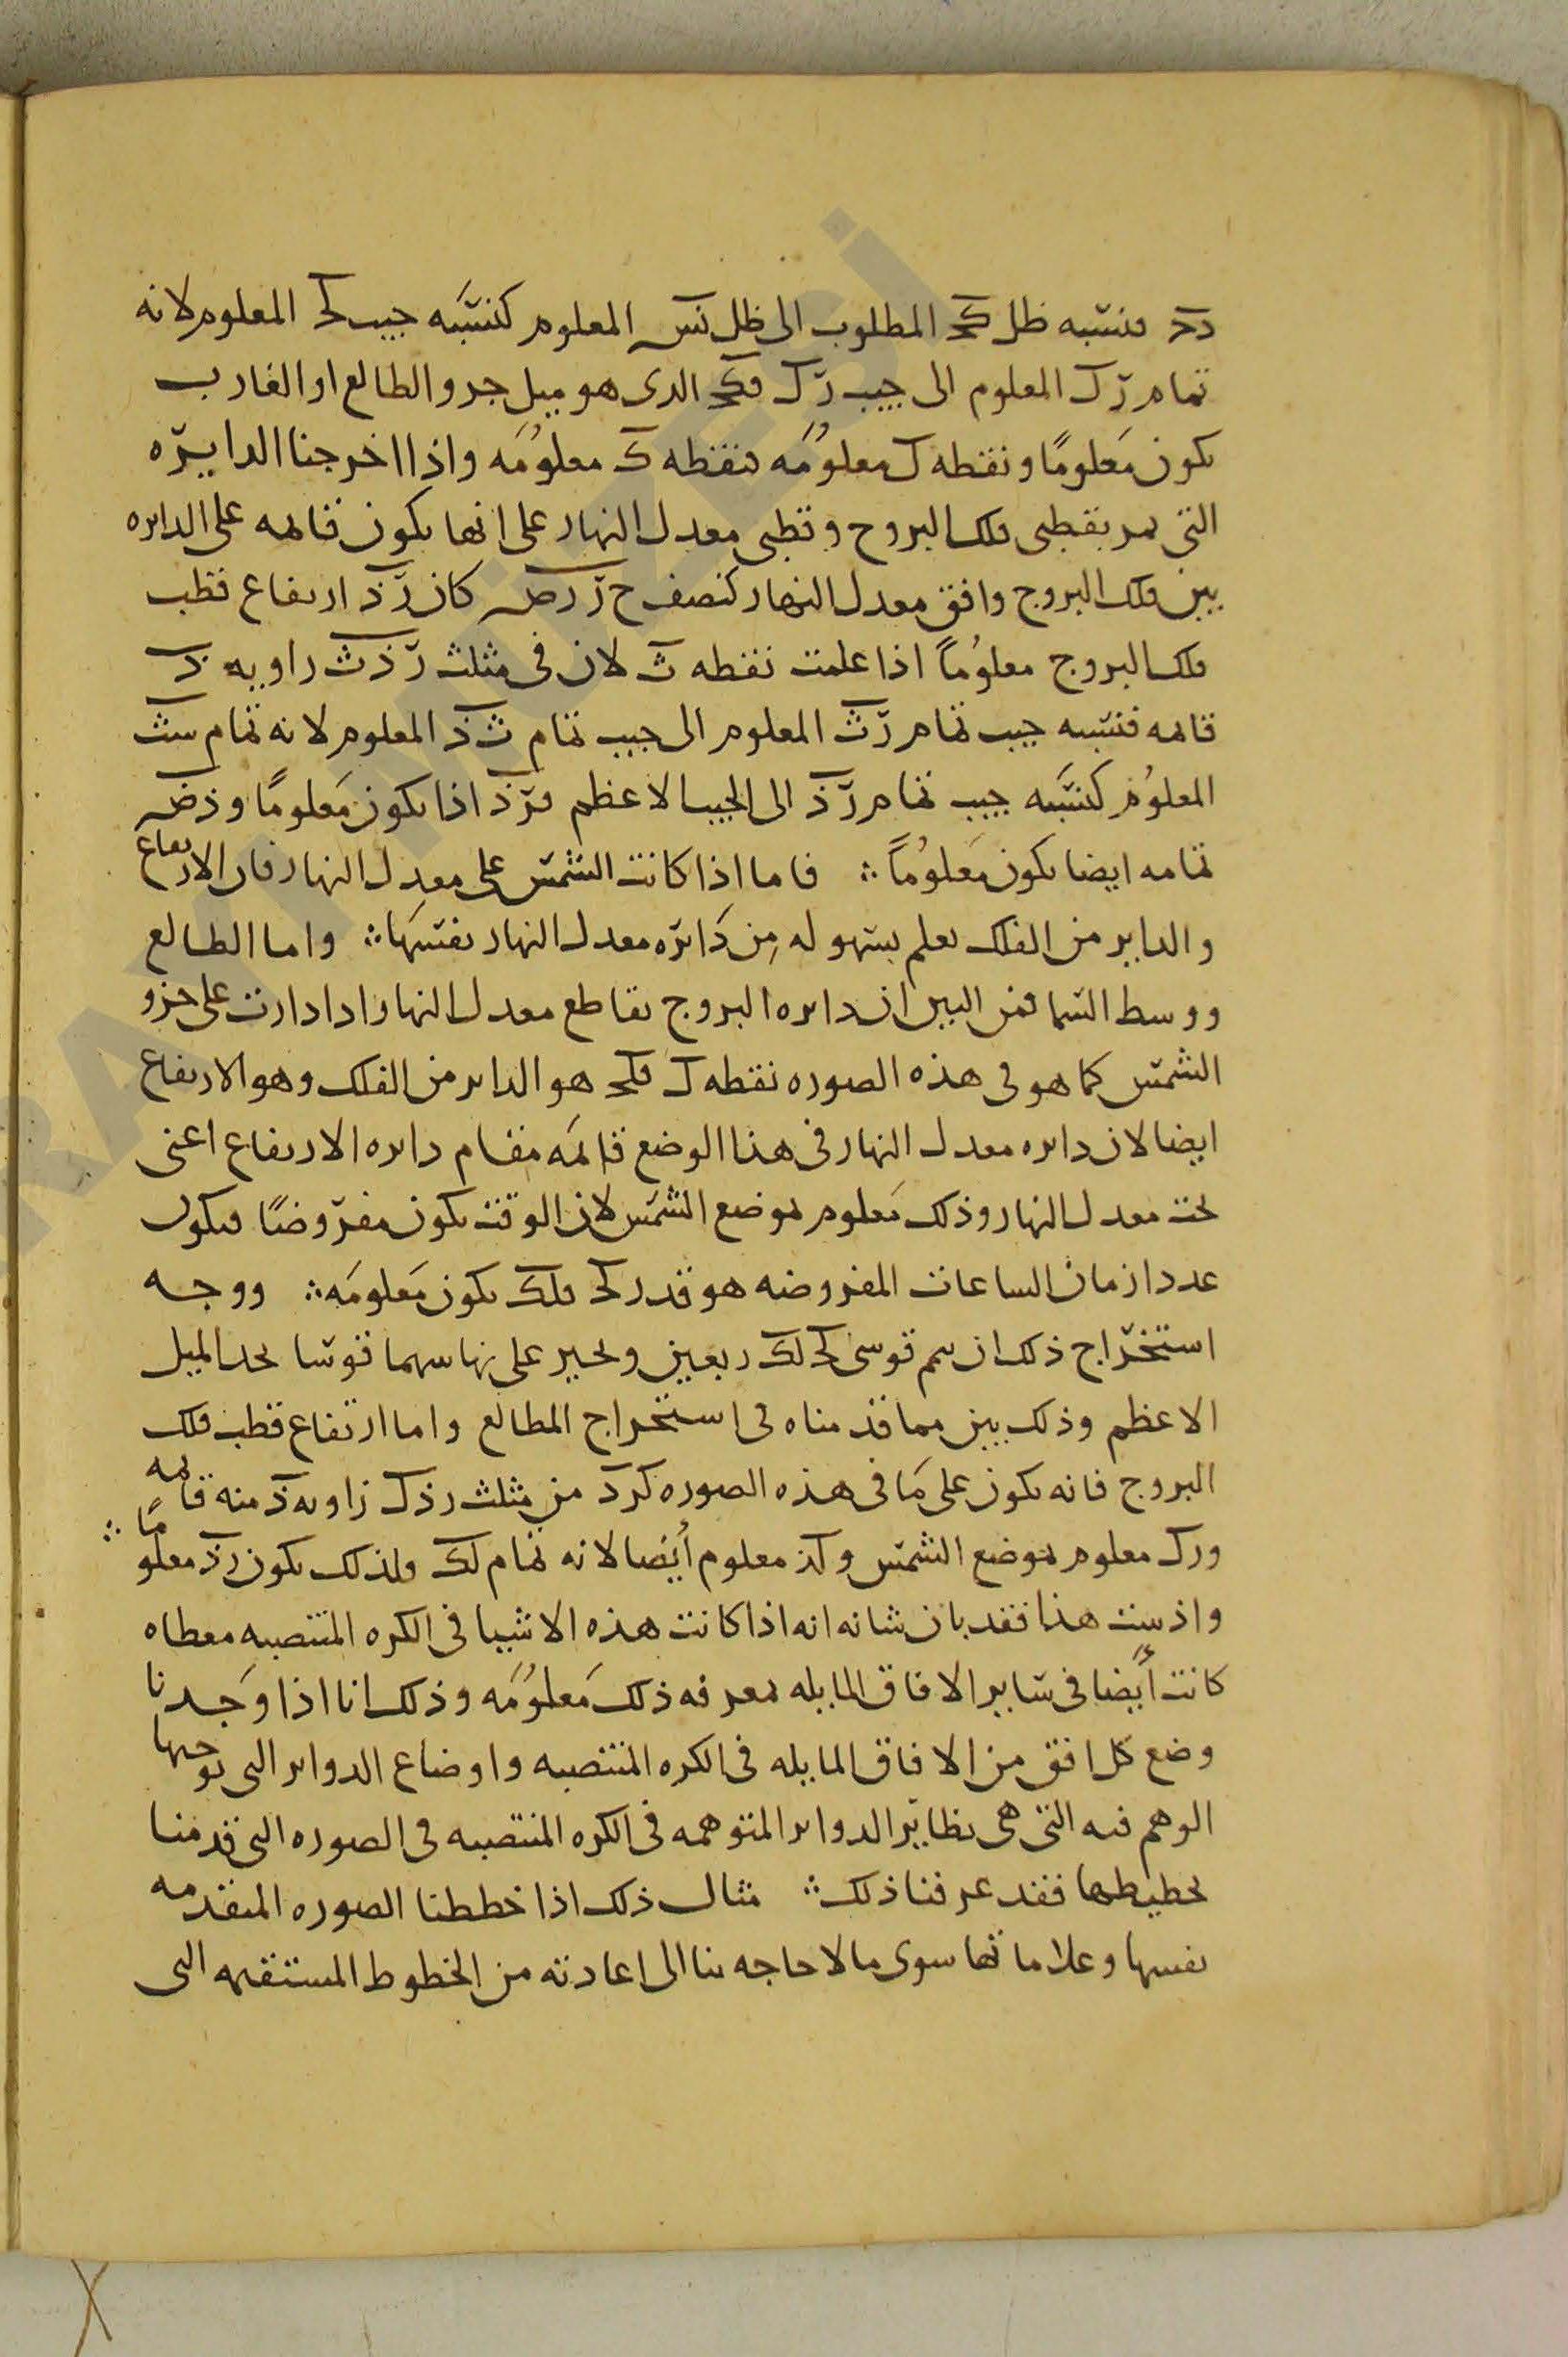 فنسبة ظل المطلوب الى ظل المعلوم كنسبه جيب كح المعلوم لانه
تمام رك المعلوم الى جيب رك الدى هو ميل جرو الطالع او الغارب
يكون معلومًا ونقطه ل معلومَه فنقطه ك معلومَه واذا اخرجنا الدايره
التى تمر بقطبى فلك البروج وقطبى معدل النهار على انها يكون قايمه على الدايره
بين فلك البروج وافق معدل النهار كنصف ح ز رض كان رذ ارتفاع قطب
فلك البروج معلومًا اذا علمت نقطه ث لان فى مثلث رذث زاويه ذ
قايمه فنسبه جيب تمام رث المعلوم الى جيب تمام ثذ المعلوم لانه تمام سث
المعلوم كنسبه جيب تمام رذ الى الجيب الاعظم فرذ اذا يكون معلومًا وذض
تمامه ايضا يكون معلومًا ∴ فاما اذا كانت الشمس على معدل النهار فان الارتفاع
والداير من الفلك يعلم بسهوله من دايره معدل النهار نفسها ∴ واما الطالع
ووسط السما فمن البين ان دايره البروج تقاطع معدل النهار اذا دارت على جزو
الشمس كما هو فى هذه الصوره نقطه ل فلح هو الداير من الفلك وهو الارتفاع
ايضا لان دايره معدل النهار فى هذا الوضع قايمَه مقام دايره الارتفاع اعنى
تحت معدل النهار وذلك معلوم لموضع الشمس لان الوقت يكون مفروضًا فيكون
عدد ازمان الساعات المفروضه هو قدر لح فلك يكون معلومَه ∴ ووجه
استخراج ذلك ان يتم قوسى لح لك ربعين ويجيز على نهاييهما قوسا بحد الميل
الاعظم وذلك بين مما قدمناه فى استخراج المطالع واما ارتفاع قطب فلك
البروج فانه يكون على مَا فى هذه الصوره كرذ من مثلث رذل زاويه ذ منه قايمه
ورل معلوم لموضع الشمس ولذ معلوم أيضا لانه تمام لك فلذلك يكون رذ معلومًا ∴
واذ بينت هذا فقد بان شانه انه اذا كانت هذه الاشيا فى الكره المنتصبه معطاه
كانت أيضا فى ساير الافاق المايله بمعرفه ذلك معلومَه وذلك انا اذا وَجدنا
وضع كل افق من الافاق المايله فى الكره المنتصبه واوضاع الدواير التى توجبها
الوهم فيه التى هى نظاير الدواير المتوهمه فى الكره المنتصبه فى الصوره التى قدمنا
تخطيطها فقد عرفنا ذلك ∴ مثال ذلك اذا خططنا الصوره المتقدمه
نفسها وعلاماتها سوى ما لا حاجه بنا الى اعادته من الخطوط المستقيمه التى